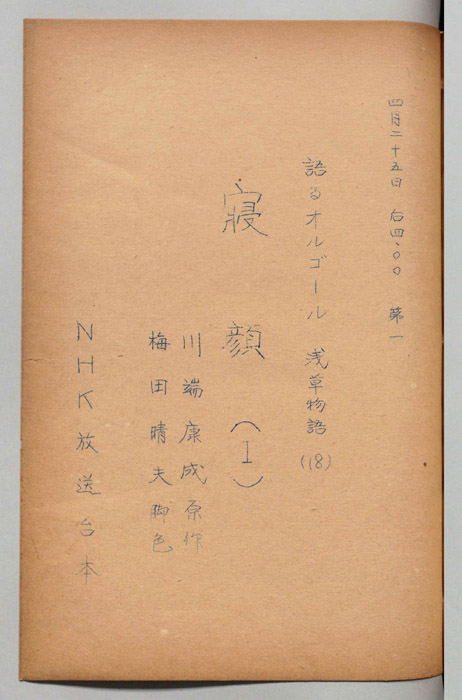 四月二十五日 后四、〇〇 第一
語るオルゴール 浅草物語 (18)
寢顔 (I)
川端康成原作
梅田晴夫脚色
NHK放送台本